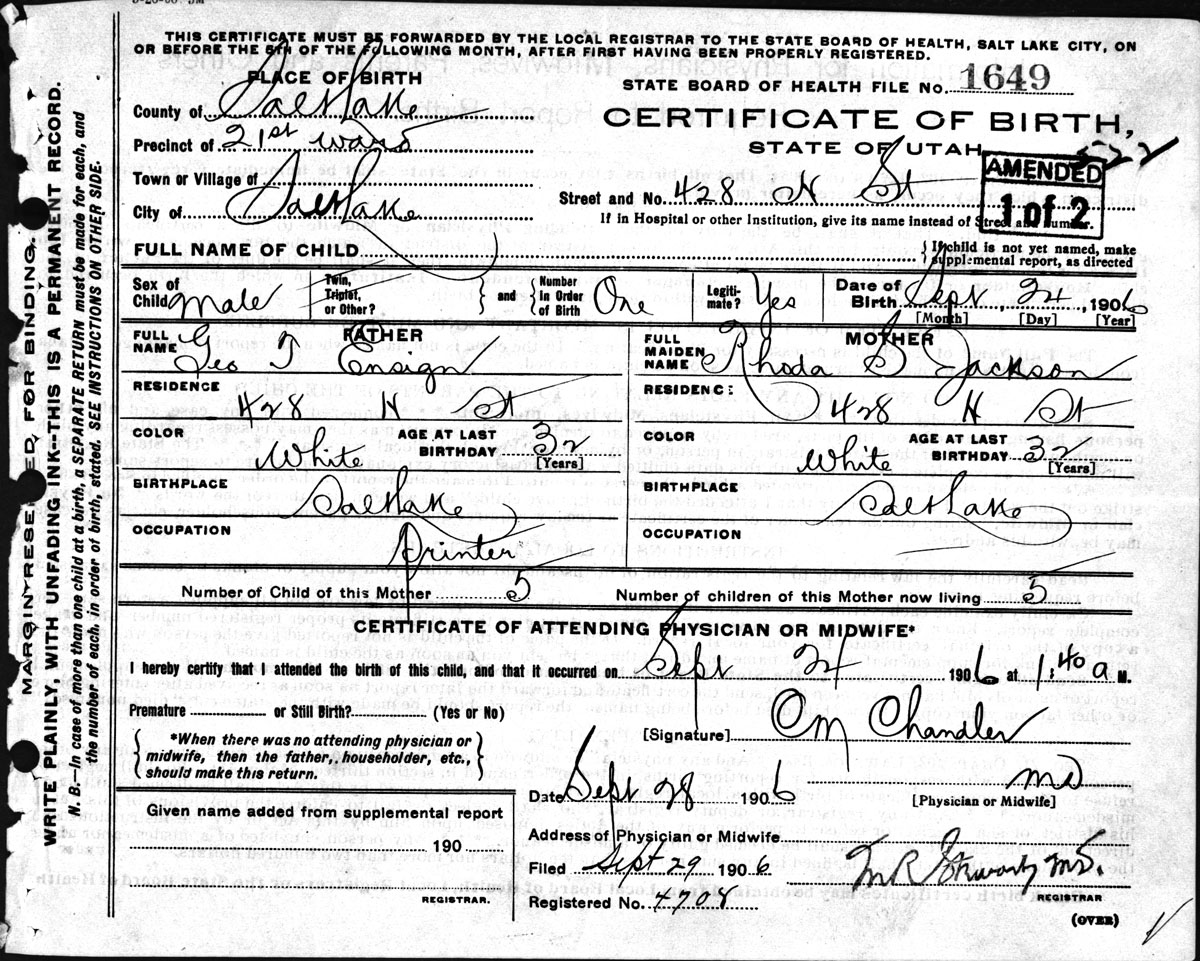 THIS CERTIFICATE MUST BE FORWARDED BY THE LOCAL REGISTRAR TO THE STATE BOARD OF HEALTH, SALT LAKE CITY, ON
OR BEFORE THE 5TH OF THE FOLLOWING MONTH, AFTER FIRST HAVING BEEN PROPERLY REGISTERED.
PLACE OF BIRTH
STATE BOARD OF HEALTH FILE No. 1649
County of Salt Lake
CERTIFICATE OF BIRTH,
Precinct of 21st Ward
STATE OF UTAH
522
AMENDED
1 of 2
Town or Village of
Street and No. 428 N St
City of Salt Lake
If in Hospital or other Institution, give its name instead of Street and number.
FULL NAME OF CHILD
{ If child is not yet named, make
supplemental report, as directed
Sex of Child Male
Twin, Triplet, or Other? } and { Number In Order of Birth One
Legitimate? Yes
Date of Birth Sept, 24, 1906
[Month] [Day] [Year]
FATHER
FULL NAME Geo T Ensign
MOTHER
FULL MAIDEN NAME Rhoda S Jackson
RESIDENCE 428 N St
RESIDENC: 428 N St
COLOR White AGE AT LAST BIRTHDAY 32 [Years]
COLOR White AGE AT LAST BIRTHDAY 32 [Years]
BIRTHPLACE Salt Lake
BIRTHPLACE Salt Lake
OCCUPATION Printer
OCCUPATION
Number of Child of this Mother 5
Number of children of this Mother now living 5
CERTIFICATE OF ATTENDING PHYSICIAN OR MIDWIFE*
I hereby certify that I attended the birth of this child, and that it occurred on Sept 24 1906 at 1:40 a M.
Premature or Still Birth? (Yes or No)
[Signature] O M Chandler
{ *When there was no attending physician or
midwife, then the father, householder, etc.,
should make this return. }
MD
[Physician or Midwife]
Date Sept 28 1906
Given name added from supplemental report
190
REGISTRAR.
Address of Physician or Midwife
Filed Sept 29 1906
Registered No. 4708
M R Stewart MD.
REGISTRAR
(OVER)
MARGIN RESERVED FOR BINDING.
WRITE PLAINLY WITH UNFADING INK--THIS IS A PERMANENT RECORD.
N. B.--In case of more than one child at a birth, a SEPARATE RETURN must be made for each, and
the number of each, in order of birth, stated. SEE INSTRUCTIONS ON OTHER SIDE.